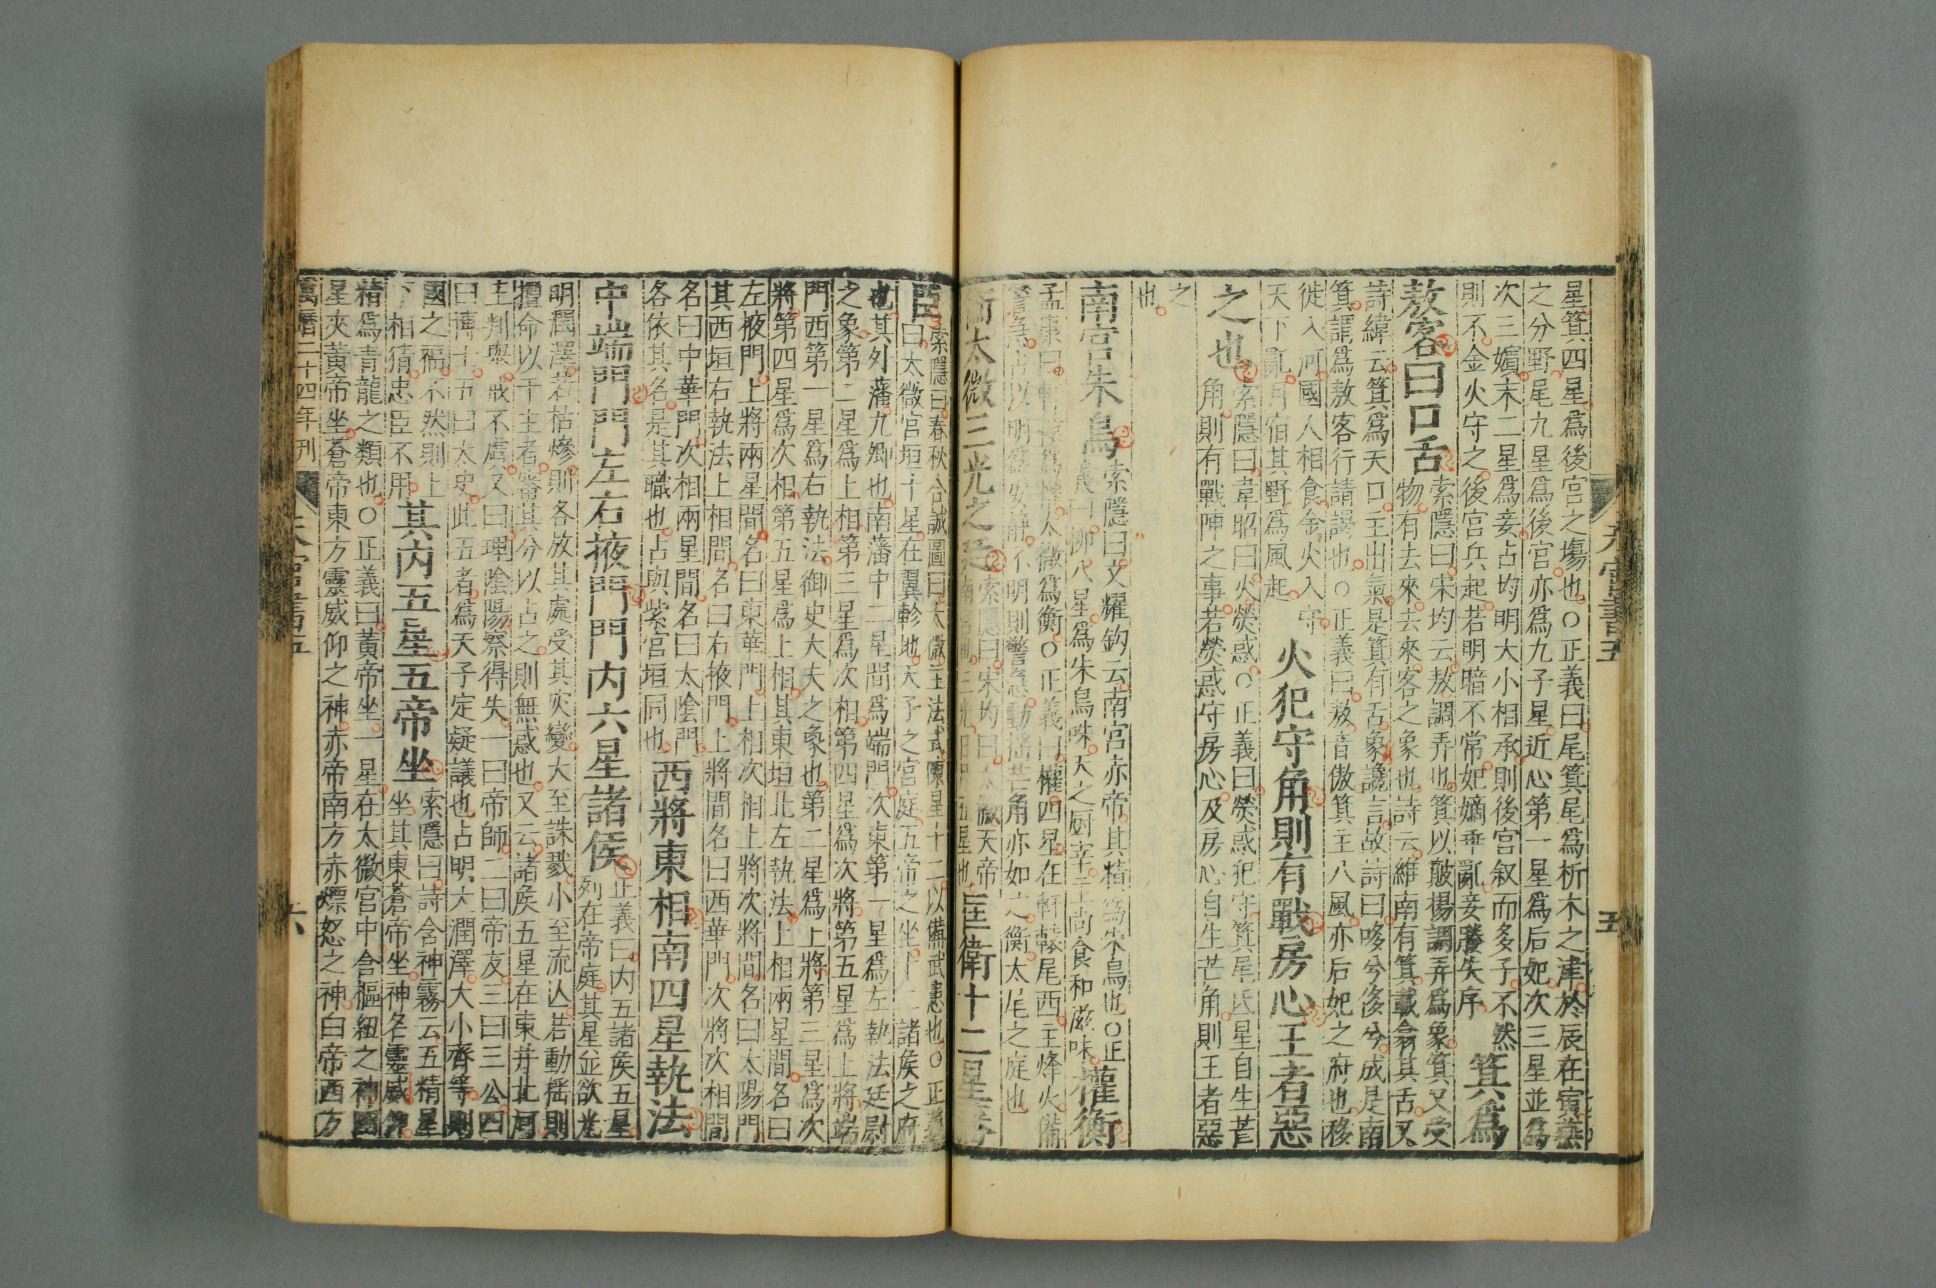 星箕四星爲後宮之塲也○正義曰尾箕尾爲析木之津於辰在寅燕
之分野尾九星爲後宮亦爲九子星近心第一星爲后妃次三星並爲
次三嬪末二星爲妾占均明大小相承則後宮叙而多子不然
則不金火守之後宮兵起若明暗不常妃嫡乖亂妾媵失序
箕爲
敖客曰口舌
索隱曰宋均云敖調弄也箕以簸揚調弄爲象箕又受
物有去來去來客之象也詩云維南有箕載翕其舌又
詩緯云箕爲天口主出氣是箕有舌象讒言故詩曰哆兮侈兮成是南
箕謂爲敖客行請謁也○正義曰敖音傲箕主八風亦后妃之府也移
徙入河國人相食金火入守
天下亂月宿其野爲風起
火犯守角則有戰房心王者惡
之也
索隱曰韋昭曰火熒惑○正義曰熒惑犯守箕尾氐星自生芒
角則有戰陣之事若熒惑守房心及房心自生芒角則王者惡
之
也
南宮朱鳥
索隱曰文耀鉤云南宮赤帝其精爲朱鳥也○正
義曰柳八星爲朱鳥咮天之廚宰主尚食和滋味
權衡
孟康曰軒轅爲權太微爲衡○正義曰權四星在軒轅尾西主烽火備
警急占以明爲安靜不明則警急動搖芒角亦如之衡太尾之庭也
衡太微三光之廷
索隱曰宋均曰太微天帝
南宮也三光日月五星也
匡衛十二星藩
臣
索隱曰春秋合誠圖曰太微主法式陳星十二以備武患也○正義
曰太微宮垣十星在翼軫地天子之宮庭五帝之坐十二諸侯之府
也其外藩九卿也南藩中二星間爲端門次東第一星爲左執法廷尉
之象第二星爲上相第三星爲次相第四星爲次將第五星爲上將端
門西第一星爲右執法御史大夫之象也第二星爲上將第三星爲次
將第四星爲次相第五星爲上相其東垣北左執法上相兩星間名曰
左掖門上將兩星間名曰東華門上相次相上將次將間名曰太陽門
其西垣右執法上相間名曰右掖門上將間名曰西華門次將次相間
名曰中華門次相兩星間名曰太陰門
各依其名是其職也占與紫宮垣同也
西將東相南四星執法
中端門門左右掖門門內六星諸侯
正義曰內五諸侯五星
列在帝庭其星並欲光
明潤澤若枯燥則各於其處受其災變大至誅戮小至流亡若動搖則
擅命以干主者審其分以占之則無惑也又云諸侯五星在東井北河
主刺舉戒不虞又曰理陰陽察得失一曰帝師二曰帝友三曰三公四
曰博士五曰太史此五者爲天子定疑議也占明大潤澤大小齊等則
國之福不然則上
下相猜忠臣不用
其內五星五帝坐
索隱曰詩含神霧云五精星
坐其東蒼帝坐神名靈威仰
精爲青龍之類也○正義曰黃帝坐一星在太微宮中含樞紐之神四
星夾黃帝坐蒼帝東方靈威仰之神赤帝南方赤熛怒之神白帝西方
萬曆二十四年刊
天官書五
六
天官書五
五